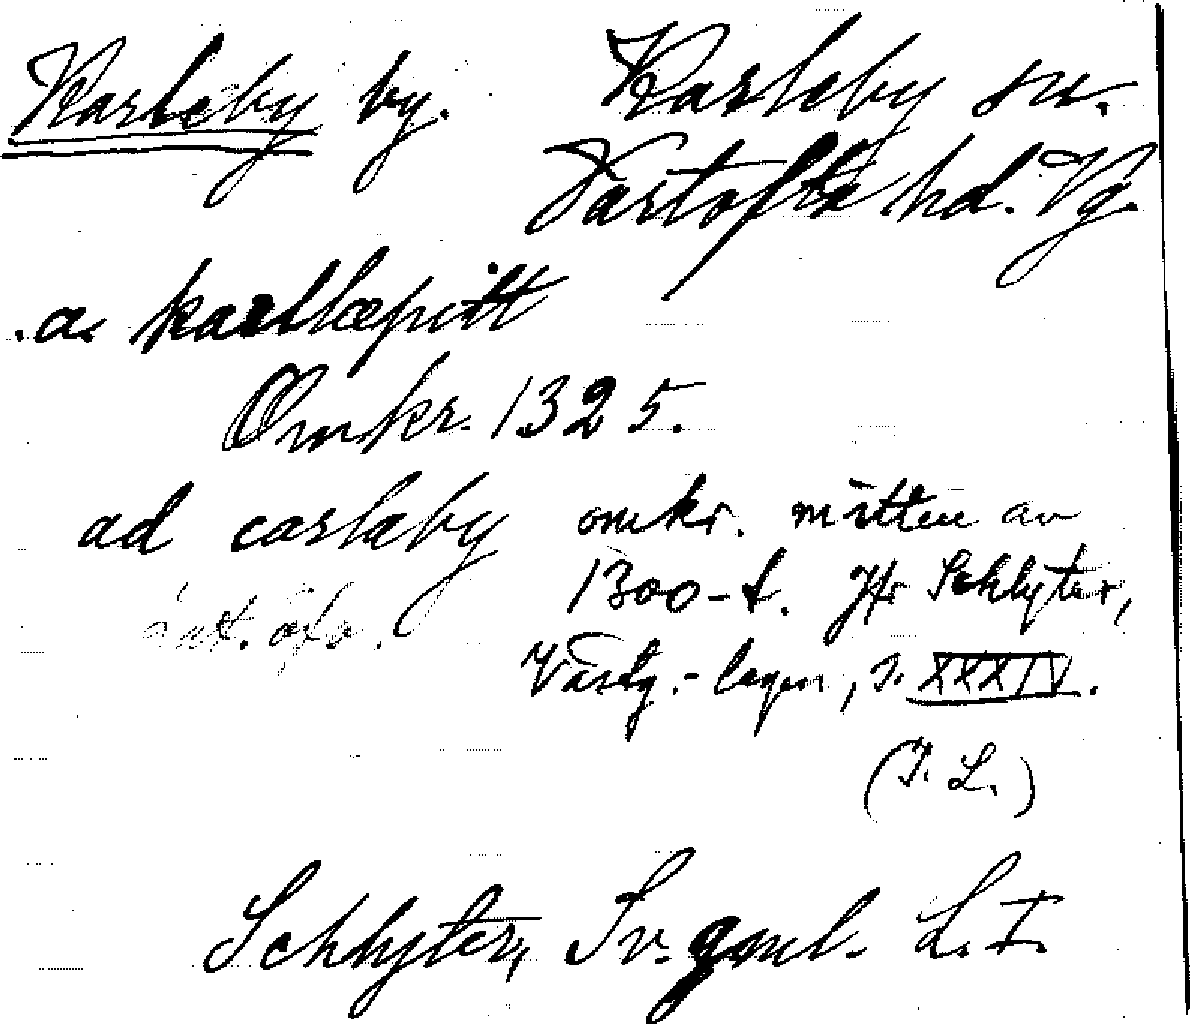 Karleby by. Karleby sn.
Vartofta hd. Vg.
.a. karllæpitt
Omkr. 1325.
ad carlæby omkr. mitten av
1300-t. Jfr Schlyter,
Västg.-lagen, s. XXXIV.
(I. L.)
Schlyter, Sv. gml. L. I.